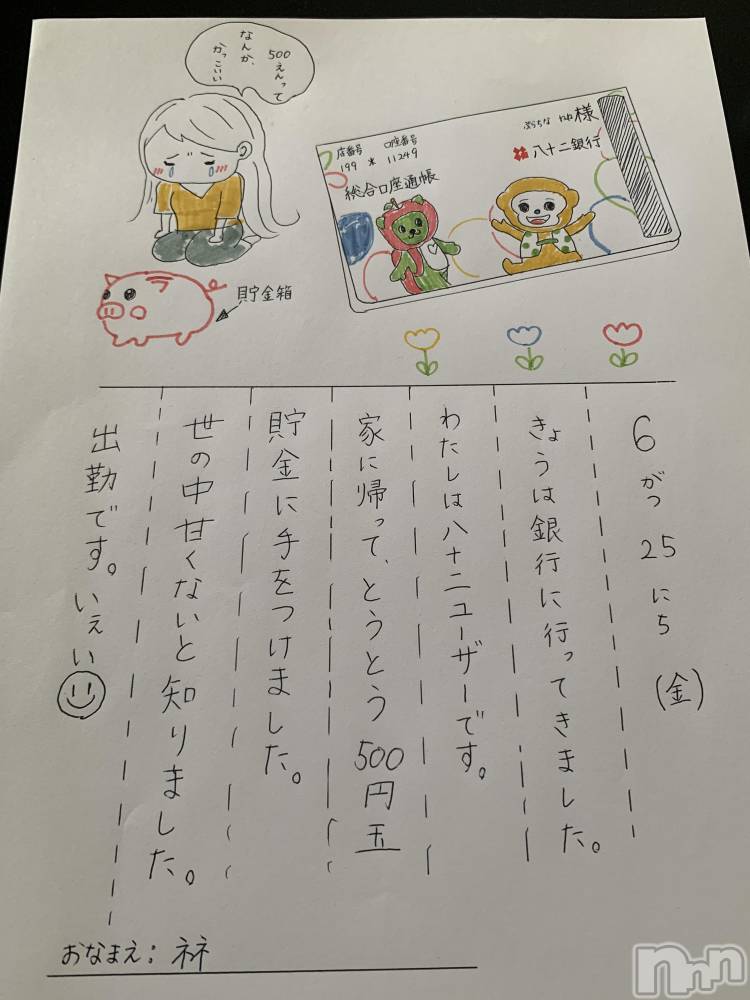 500えんって
なんか、
かっこいい
店番号 口座番号
199 * 11249
ぷらちな ねね様
八十二銀行
総合口座通帳
貯金箱
6がつ25にち(金)
きょうは銀行に行ってきました。
わたしは八十二ユーザーです。
家に帰って、とうとう500円玉
貯金に手をつけました。
世の中甘くないと知りました。
出勤です。いぇい
おなまえ:ネネ
nnn